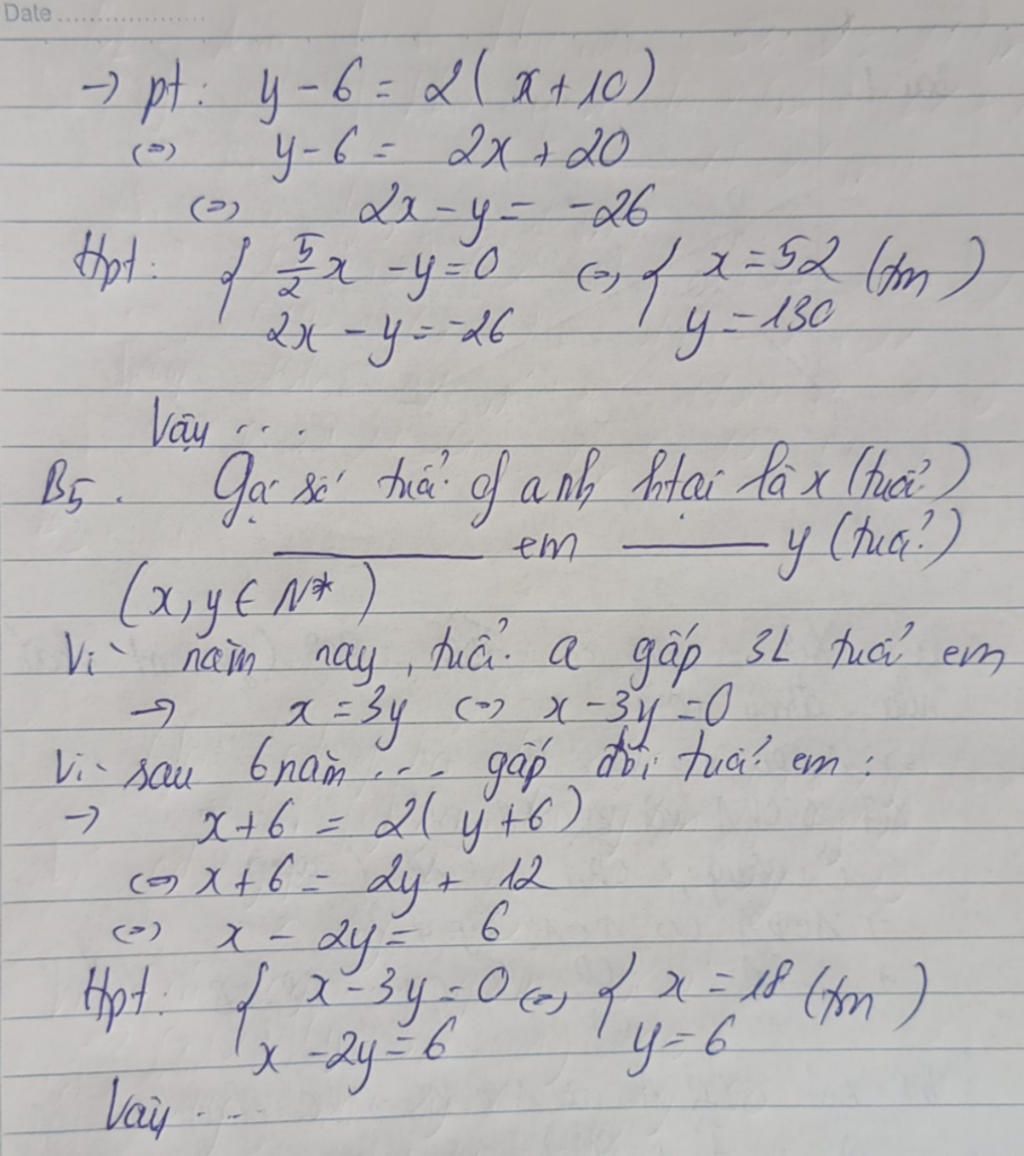 Date ....................
→ pt: y - 6 = 2( x + 10 )
(=) y - 6 = 2x + 20
(=) 2x - y = -26
Hpt: { 5/2 x - y = 0 (=) { x = 52 (tm)
2x - y = -26 y = 130
Vậy ...
B5. Gọi số tuổi of anh htại là x (tuổi)
———— em ——— y (tuổi)
(x, y ∈ N*)
Vì năm nay, tuổi a gấp 3L tuổi em
→ x = 3y (=) x - 3y = 0
Vì sau 6 năm ... gấp đôi tuổi em :
→ x + 6 = 2( y + 6 )
(=) x + 6 = 2y + 12
(=) x - 2y = 6
Hpt: { x - 3y = 0 (=) { x = 18 (tm)
x - 2y = 6 y = 6
Vậy ....